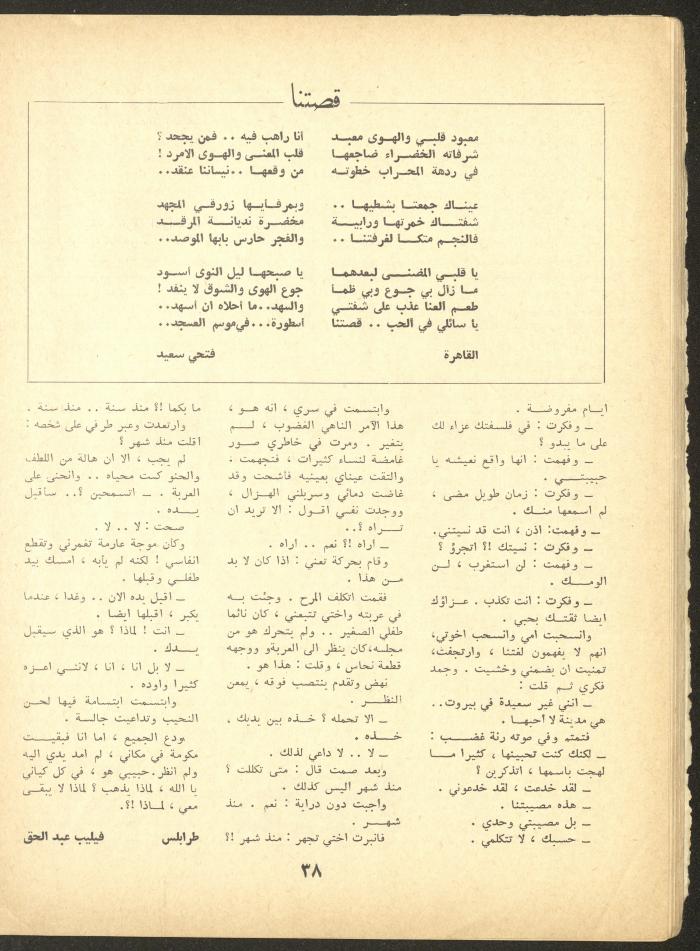 قصتنا
معبود قلبـي والهـوى معبـد أنا راهب فيه .. فمن يجحد ؟
شرفاته الخضـراء ضاجعهـا قلب المعنـى والهـوى الامرد !
في ردهة المحـراب خطوتـه من وقعهـا ..نيساننا عنقد..
عينـاك جمعتـا بشطيهـا .. وبمرفـايهـا زورقـي المجهد
شفتـاك خمرتهـا ورابيـة مخضـرة نديانـة المرقـد
فالنجـم متكـا لغرفتنـا .. والفجر حارس بابها الموصد..
يا قلبـي المضنـى لبعدهمـا يا صبحهـا ليل النوى أسـود
مـا زال بي جـوع وبي ظمـأ جوع الهوى والشوق لا ينفد !
طعـم العنا عذب على شفتـي والسهد..ما أحلاه ان أسهد..
يا سائلي في الحب .. قصتنا أسطورة...في موسم العسجد..
القاهرة فتحي سعيد
ايـام مفروضـة .
ـ وفكرت : في فلسفتك عزاء لك
على ما يبدو ؟
ـ وفهمت : انها واقع نعيشه يا
حبيبتـي .
ـ وفكرت : زمان طويل مضى ،
لم اسمعها منـك .
ـ وفهمت: اذن ، انت قد نسيتني.
ـ وفكرت : نسيتك !؟ اتجرؤ ؟
ـ وفهمت : لن استغرب ، لـن
الومـك .
ـ وفكرت : انت تكذب . عـزاؤك
ايضا ثقتـك بحبي .
وانسحبت امي وانسحب اخوتي،
انهم لا يفهمون لغتنا ، وارتجفت،
تمنيت ان يضمني وخشيت . وجمد
فكري ثـم قلت :
ـ انني غير سعيدة في بيروت..
هي مدينة لا احبهـا .
فتمتم وفي صوته رنة غضـب :
ـ لكنك كنت تحبينها ، كثيرا مـا
لهجت باسمها ، اتذكرين ؟
ـ لقد خدعت ، لقد خدعوني .
ـ هذه مصيبتنا .
ـ بل مصيبتي وحدي .
ـ حسبك ، لا تتكلمي .
وابتسمت في سري ، انه هـو ،
هذا الآمر الناهي الغضوب ، لـم
يتغير . ومرت في خاطري صـور
غامضة لنساء كثيرات ، فتجهمت .
والتقت عيناي بعينيه فأشحت وقد
غاضت دمائي وسربلني الهـزال ،
ووجدت نفسـي اقـول : الا تريد ان
تـراه ؟..
ـ اراه !؟ نعم .. اراه .
وقام بحركة تعني : اذا كان لا بد
مـن هذا .
فقمت اتكلف المرح . وجئت بـه
في عربته واختي تتبعني ، كان نائما
طفلي الصغير .. ولم يتحرك هو من
مجلسه،كان ينظر الى العربةو ووجهه
قطعة نحاس ، وقلت : هذا هو .
نهض وتقدم ينتصب فوقه ، يمعن
النظـر .
ـ الا تحمله ؟ خـذه بين يديك ،
خـذه .
ـ لا .. لا داعي لذلك .
وبعد صمت قال : متى تكللت ؟
منذ شهر اليس كذلك .
واجبت دون دراية : نعم . منذ
شهـر .
فانبرت اختي تجهر : منذ شهر !؟
ما بكما !؟ منذ سنة .. منذ سنة .
وارتعدت وعبر طرفي على شخصه :
اقلت منذ شهر ؟
لم يجب ، الا ان هالة من اللطف
والحنو كست محياه .. وانحنى على
العربة . ـ اتسمحين ؟.. سأقبل
يـده .
صحت : لا .. لا .
وكأن موجة عارمة تغمرني وتقطع
انفاسي ! لكنه لم يأبه ، امسك بيد
طفلـي وقبلها .
ـ اقبل يده الان .. وغدا ، عندما
يكبر ، اقبلها ايضا .
ـ انت ! لماذا ؟ هو الذي سيقبل
يـدك .
ـ لا بل انا ، انا ، لاننـي اعـزه
كثيرا واوده .
وابتسمت ابتسامة فيها لحـن
النحيب وتداعيت جالسة .
وودع الجميع ، اما انا فبقيـت
مكومة في مكاني ، لم امد يدي اليه
ولم انظر. حبيبي هو ، في كل كياني
يا الله ، لماذا يذهب ؟ لماذا لا يبقـى
معي ، لمـاذا !؟.
طرابلس فيليب عبد الحق
٣٨